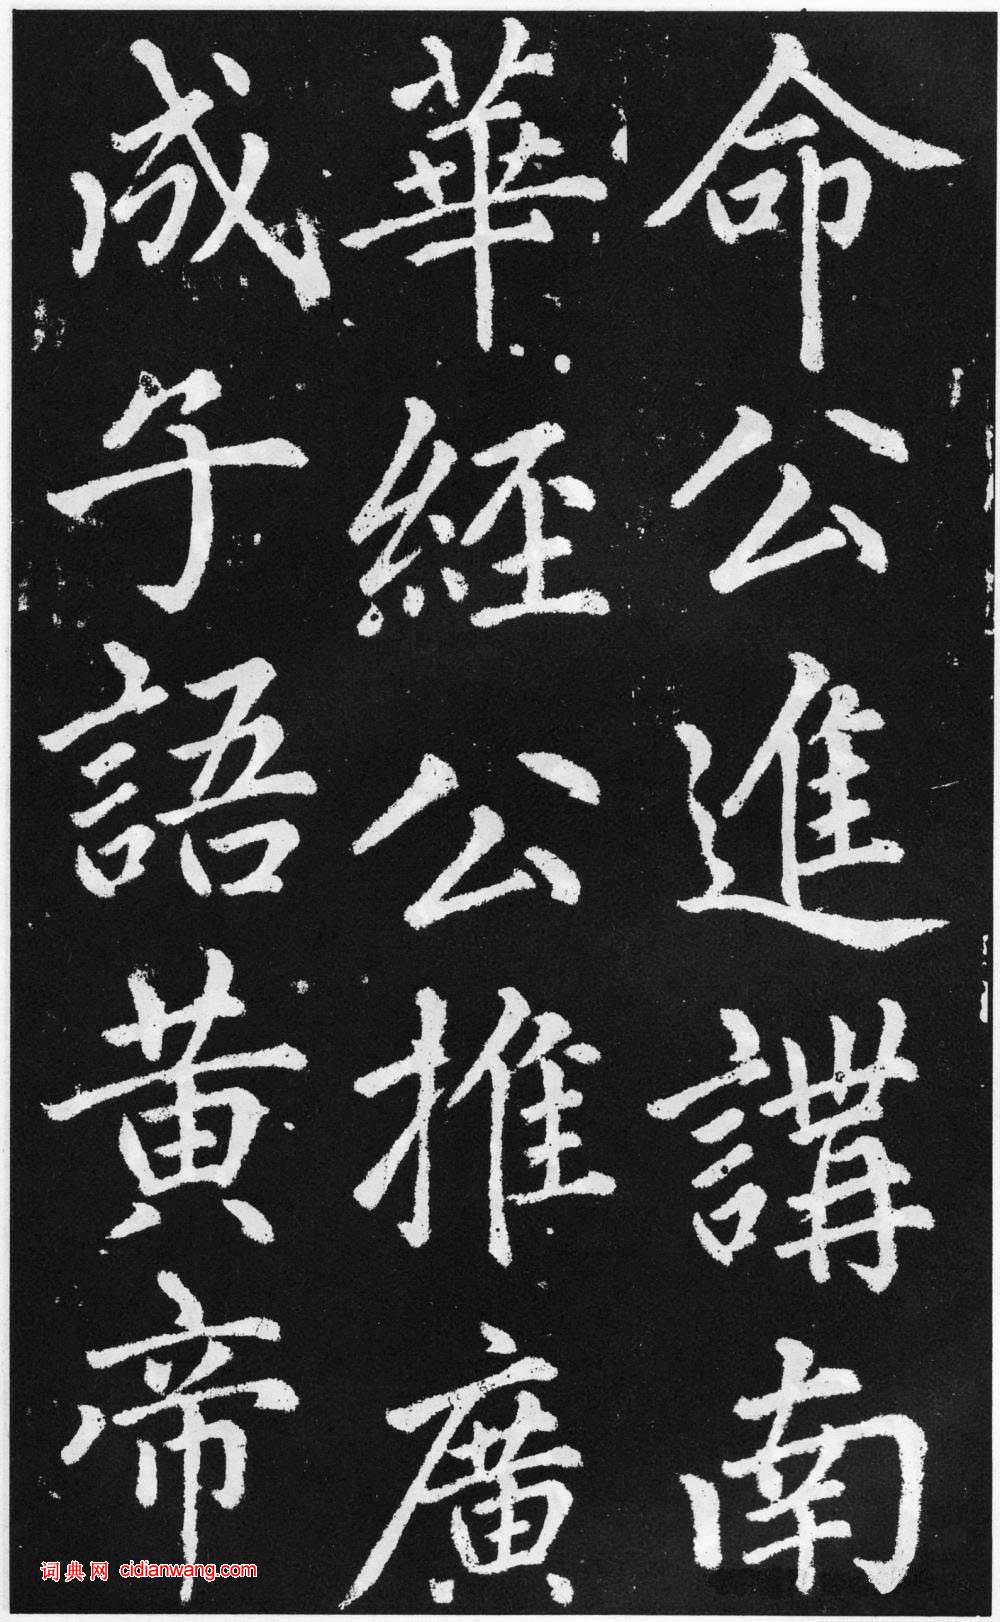 命公進講南
華經公推廣
成子語黃帝
词典网 cidianwang.com